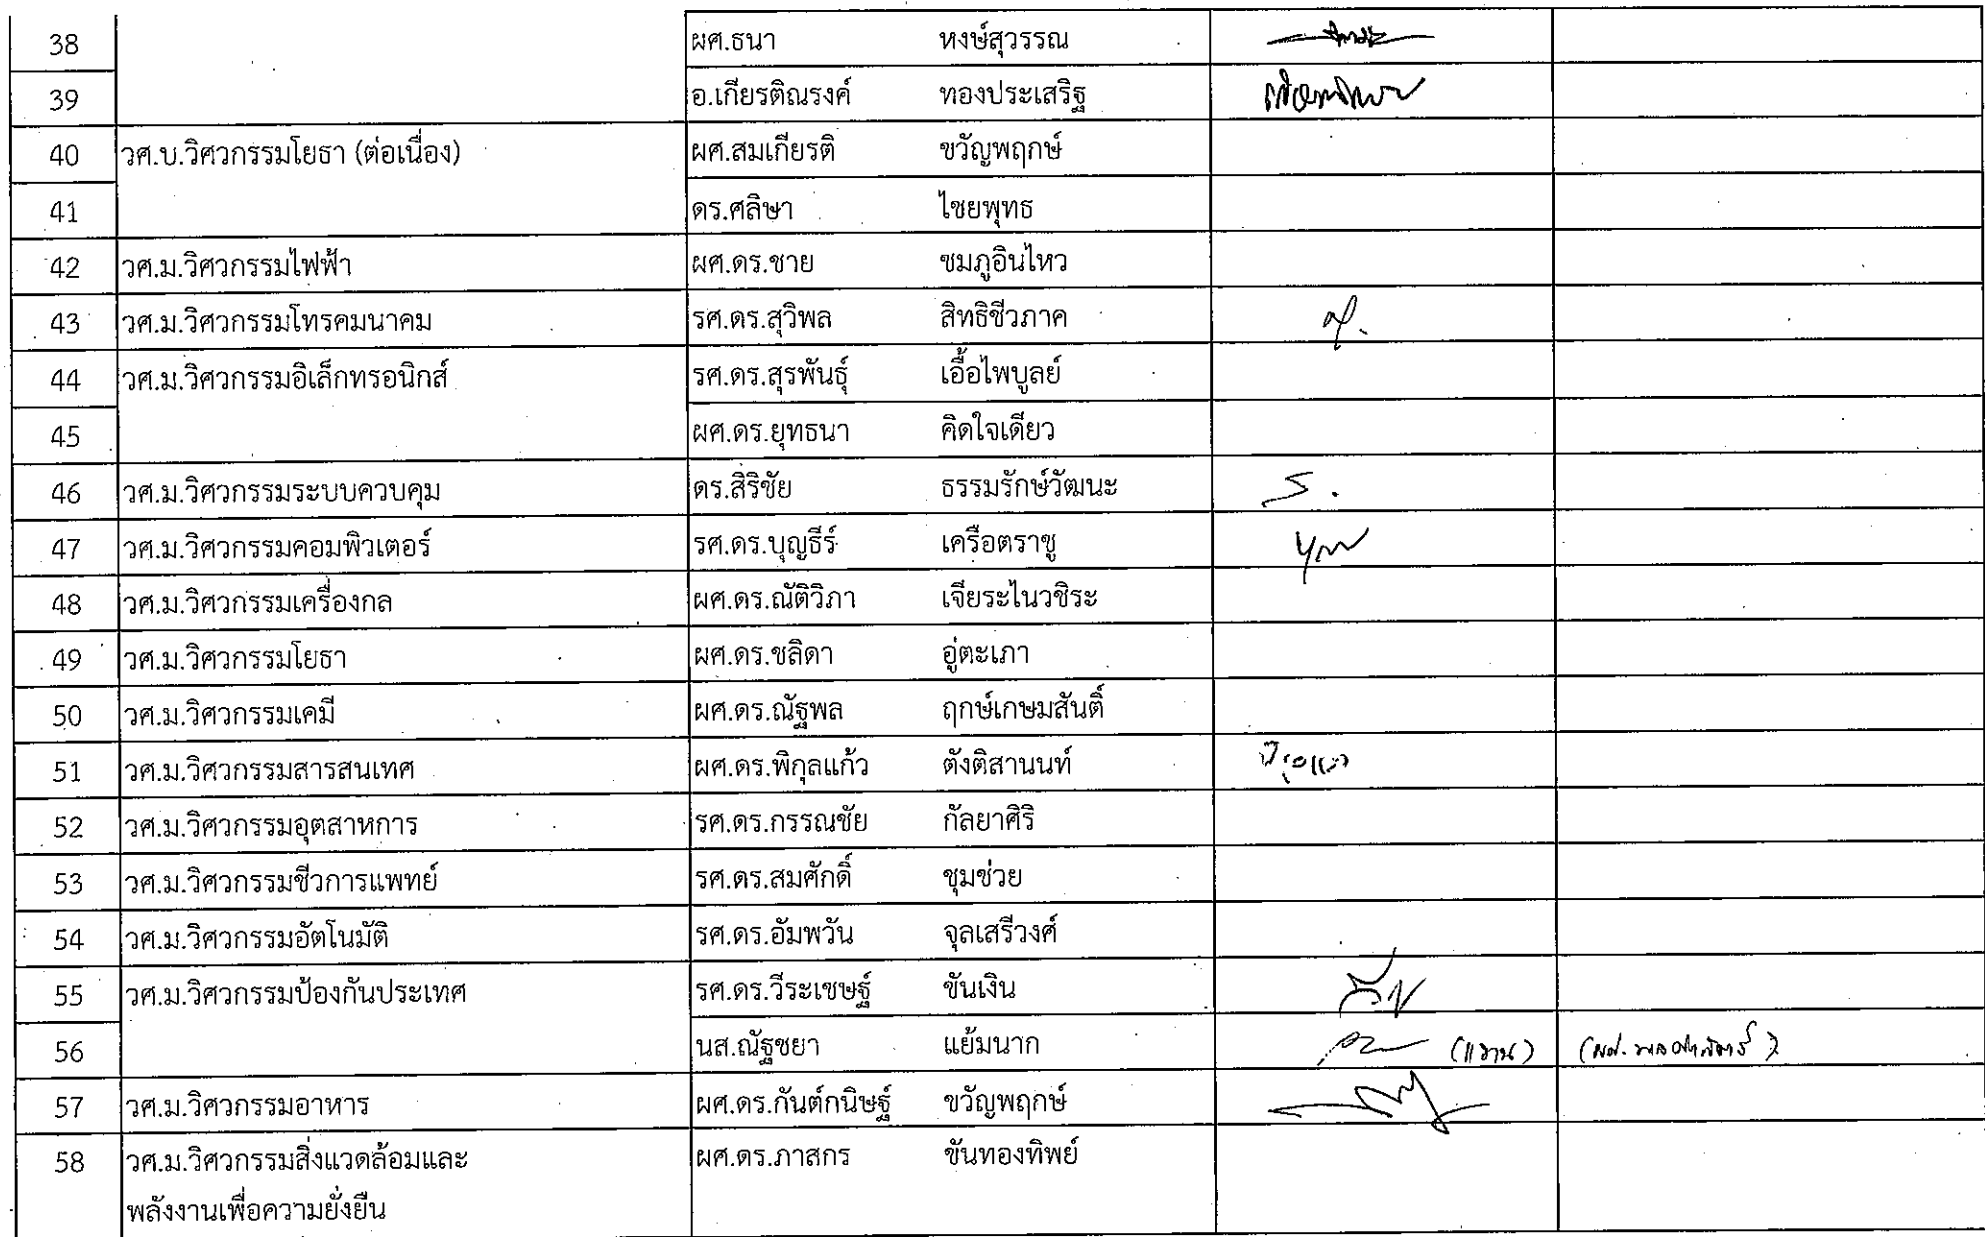 38 ผศ.ธนา หงษ์สุวรรณ
39 อ.เกียรติณรงค์ ทองประเสริฐ
40 วศ.บ.วิศวกรรมโยธา (ต่อเนื่อง) ผศ.สมเกียรติ ขวัญพฤกษ์
41 ดร.ศลิษา ไชยพุทธ
42 วศ.ม.วิศวกรรมไฟฟ้า ผศ.ดร.ชาย ชมภูอินไหว
43 วศ.ม.วิศวกรรมโทรคมนาคม รศ.ดร.สุวิพล สิทธิชีวภาค
44 วศ.ม.วิศวกรรมอิเล็กทรอนิกส์ รศ.ดร.สุรพันธุ์ เอื้อไพบูลย์
45 ผศ.ดร.ยุทธนา คิดใจเดียว
46 วศ.ม.วิศวกรรมระบบควบคุม ดร.สิริชัย ธรรมรักษ์วัฒนะ
47 วศ.ม.วิศวกรรมคอมพิวเตอร์ รศ.ดร.บุญธีร์ เครือตราชู
48 วศ.ม.วิศวกรรมเครื่องกล ผศ.ดร.ณัติวิภา เจียระไนวชิระ
49 วศ.ม.วิศวกรรมโยธา ผศ.ดร.ชลิดา อู่ตะเภา
50 วศ.ม.วิศวกรรมเคมี ผศ.ดร.ณัฐพล ฤกษ์เกษมสันติ์
51 วศ.ม.วิศวกรรมสารสนเทศ ผศ.ดร.พิกุลแก้ว ตังติสานนท์
52 วศ.ม.วิศวกรรมอุตสาหการ รศ.ดร.กรรณชัย กัลยาศิริ
53 วศ.ม.วิศวกรรมชีวการแพทย์ รศ.ดร.สมศักดิ์ ชุมช่วย
54 วศ.ม.วิศวกรรมอัตโนมัติ รศ.ดร.อัมพวัน จุลเสรีวงศ์
55 วศ.ม.วิศวกรรมป้องกันประเทศ รศ.ดร.วีระเชษฐ์ ขันเงิน
56 นส.ณัฐชยา แย้มนาก (แทน)
57 วศ.ม.วิศวกรรมอาหาร ผศ.ดร.กันต์กนิษฐ์ ขวัญพฤกษ์
58 วศ.ม.วิศวกรรมสิ่งแวดล้อมและ ผศ.ดร.ภาสกร ขันทองทิพย์
พลังงานเพื่อความยั่งยืน